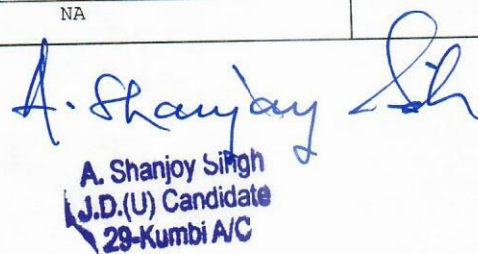 NA
A. Shanjoy Singh
A. Shanjoy Singh
J.D.(U) Candidate
29-Kumbi A/C